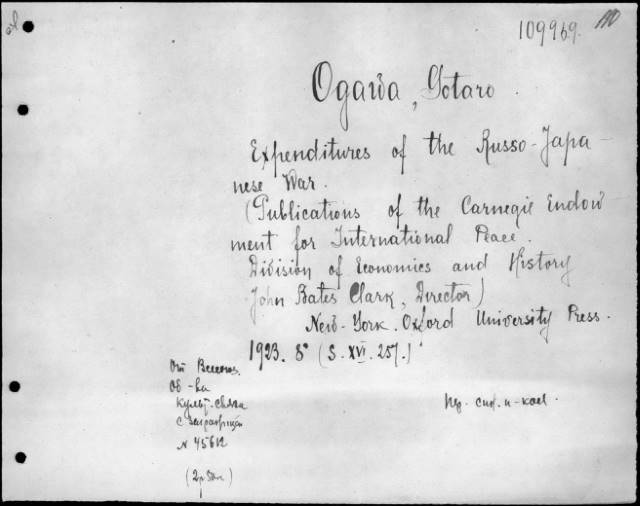 109969.
Ogawa, Gotaro.
Expenditures of the Russo-Japa-
nese War.
(Publications of the Carnegie Endow
ment for International Peace.
Division of Economics and History
John Bates Clark, Director)
New-York. Oxford University Press.
1923. 8° (S. XVI. 257.)
От Всесоюз.
Об-ва
Культ. связи
с заграницей
N 45612